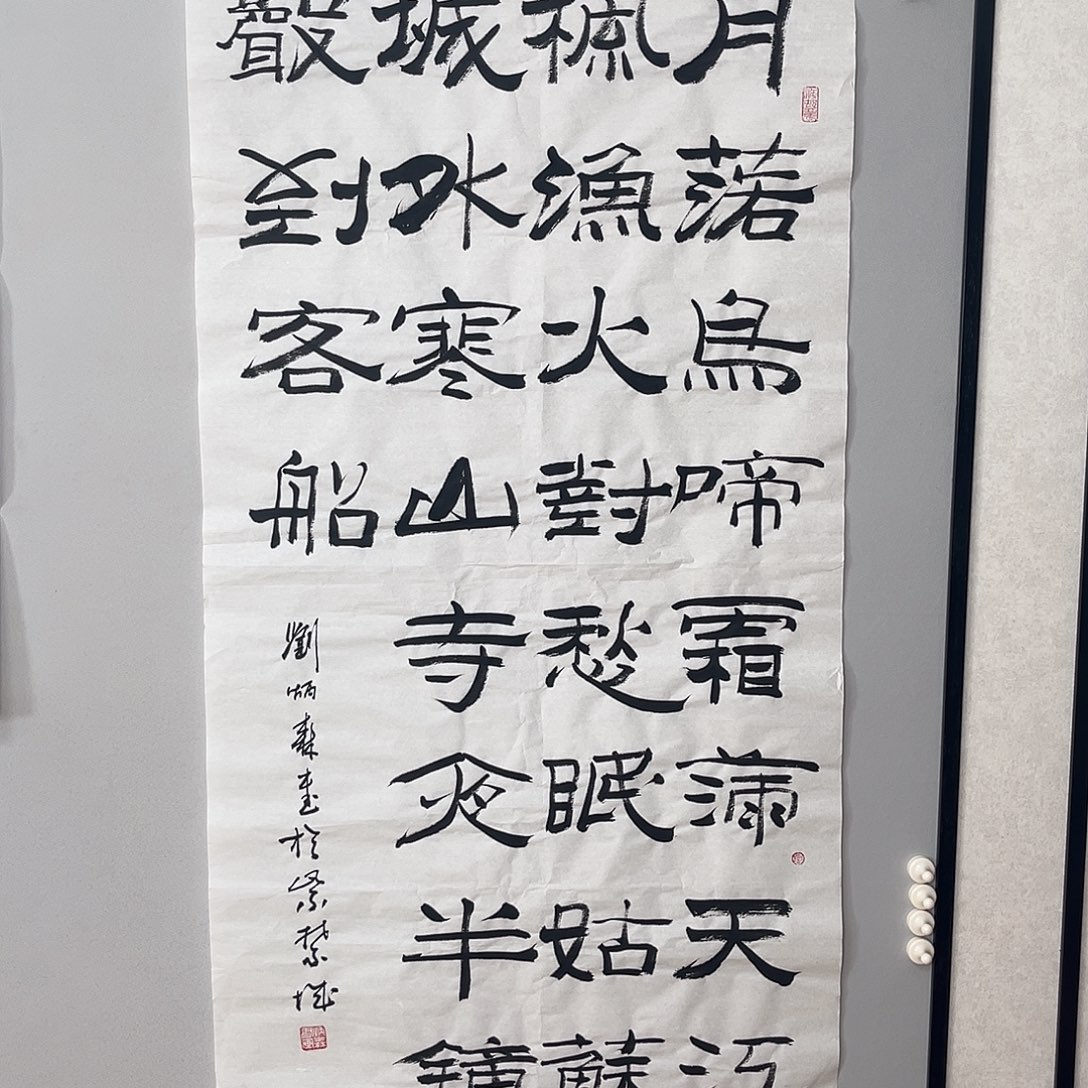 月落烏啼霜滿天江
楓漁火對愁眠姑蘇
城外寒山寺夜半鐘
聲到客船
劉炳森書於紫禁城